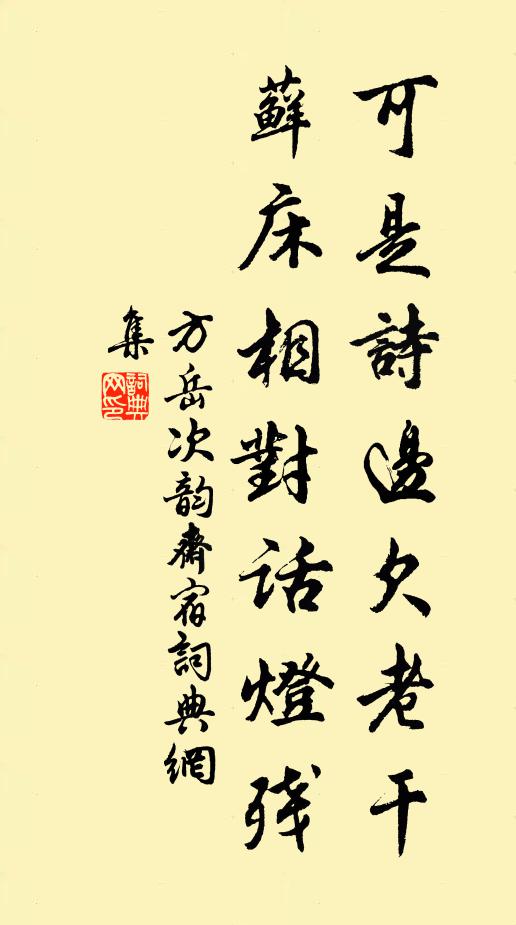 可是詩邊欠老干
蘚床相對話燈残
方岳次韵齋宿詞典網
集
詞典网印